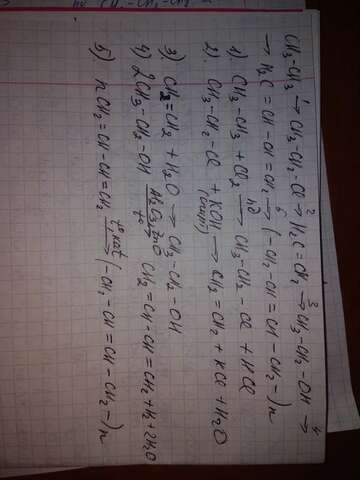 CH3-CH3 1→ CH3-CH2-Cl 2→ H2C=CH2 3→ CH3-CH2-OH 4→
→ H2C=CH-CH=CH2 5→ (-CH2-CH=CH-CH2-)n
1). CH3-CH3 + Cl2 hυ→ CH3-CH2-Cl + HCl
2). CH3-CH2-Cl + KOH (спирт) → CH2=CH2 + KCl + H2O
3). CH2=CH2 + H2O → CH3-CH2-OH
4) 2CH3-CH2-OH Al2O3, ZnO t° → CH2=CH-CH=CH2 + H2 + 2H2O
5). nCH2=CH-CH=CH2 t°, kat → (-CH2-CH=CH-CH2-)n